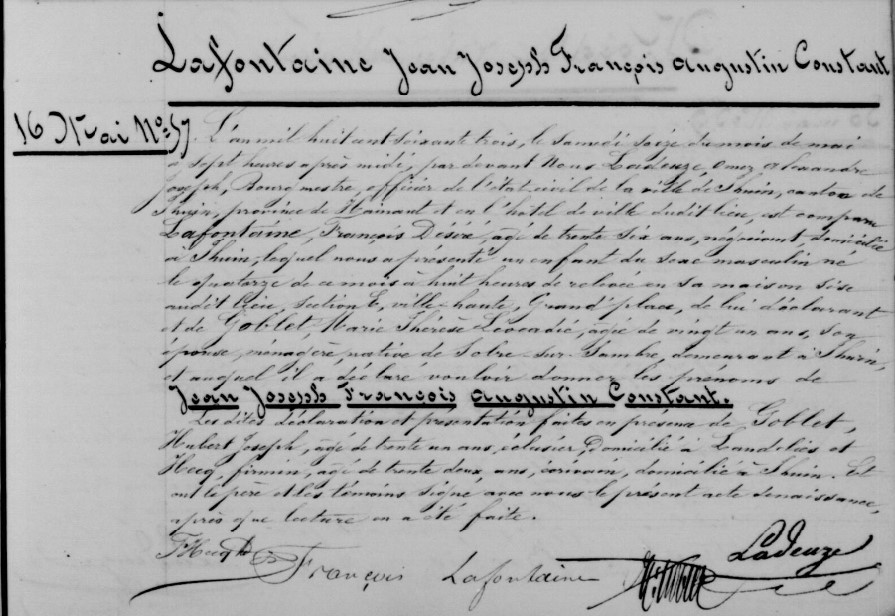 Lafontaine Jean Joseph François Augustin Constant
16 Mai N° 57
L'an mil huit cent soixante trois, le samedi seize du mois de mai
à sept heures après midi, par devant Nous Ladeuze, Omer Alexandre
Joseph, Bourgmestre, officier de l'état civil de la ville de Thuin, canton de
Thuin, province de Hainaut et en l'hôtel de ville dudit lieu, est comparu
Lafontaine, François Désiré, agé de trente six ans, négociant, domicilié
à Thuin, lequel nous a présenté un enfant du sexe masculin né
le quatorze de ce mois à huit heures de relevée en sa maison sise
audit lieu, section E, ville-haute, Grand'place, de lui déclarant
et de Goblet, Marie Thérèse Léocadie, agée de vingt un ans, son
épouse, ménagère, native de Solre-sur-Sambre, demeurant à Thuin,
et auquel il a déclaré vouloir donner les prénoms de
Jean Joseph François Augustin Constant.
Les dites déclaration et présentation faites en présence de Goblet,
Hubert Joseph, agé de trente un ans, éclusier, domicilié à Landelies et
Hecq, firmin, agé de trente deux ans, écrivain, domicilié à Thuin. Et
ont le père et les témoins signé avec nous le présent acte de naissance,
après que lecture en a été faite.
François Lafontaine
Ladeuze